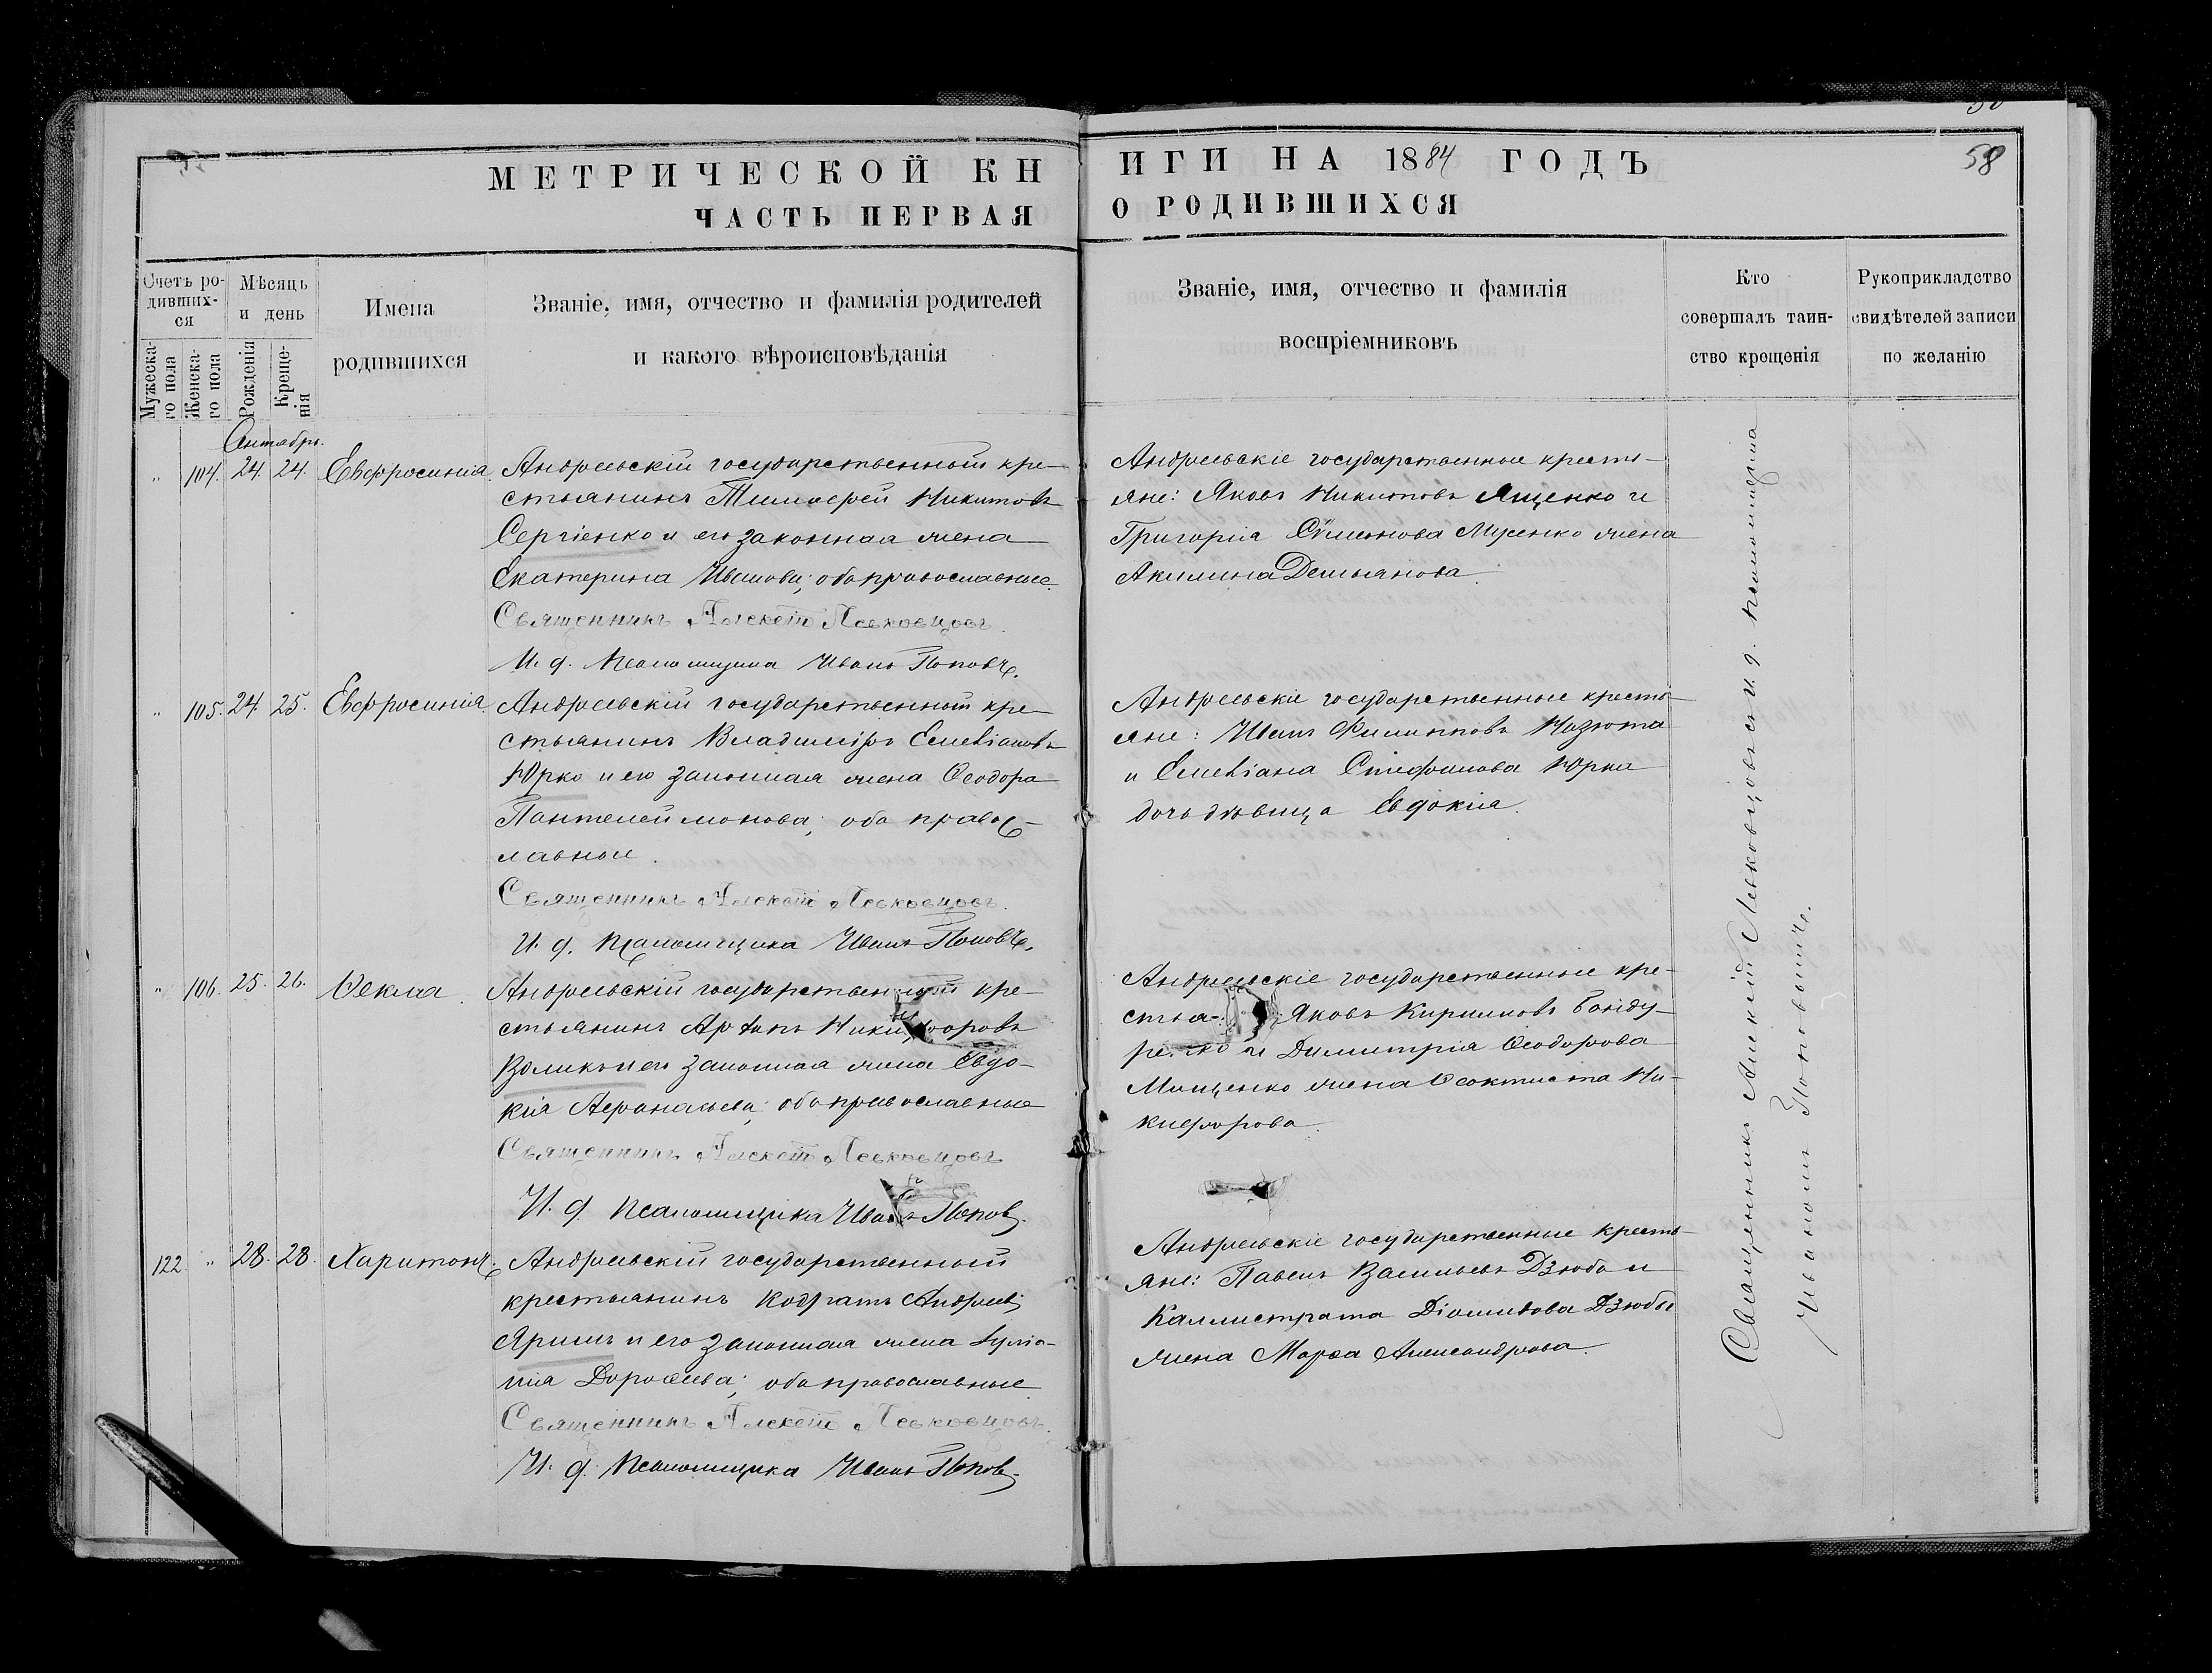 58
МЕТРИЧЕСКОЙ КНИГИ НА 1884 ГОДЪ
ЧАСТЬ ПЕРВАЯ О РОДИВШИХСЯ
Счетъ ро-
дивших-
ся
Мужеска-
го пола
Женска-
го пола
Мѣсяцъ
и день
Рожденія
Креще-
нія
Имена
родившихся
Званіе, имя, отчество и фамилія родителей
и какого вѣроисповѣданія
Званіе, имя, отчество и фамилія
воспріемниковъ
Кто
совершалъ таин-
ство крещенія
Рукоприкладство
свидѣтелей записи
по желанію
" 104. 24. 24. Евфросинія.
Андреевскій государственный кре-
стьянинъ Тимофей Никитовъ
Сергіенко и его законная жена
Екатерина Иванова; оба православные.
Священникъ Алексѣй Левковцовъ.
И. д. Псаломщика Иванъ Поповъ.
Андреевскіе государственные кресть-
яне: Яковъ Никитовъ Ященко и
Григорія Сѵмеонова Мусенко жена
Акилина Демьянова.
" 105. 24. 25. Евфросинія.
Андреевскій государственный кре-
стьянинъ Владиміръ Емеліановъ
Юрко и его законная жена Ѳеодора
Пантелеймонова; оба правос-
лавные.
Священникъ Алексѣй Левковцовъ.
И. д. Псаломщика Иванъ Поповъ.
Андреевскіе государственные кресть-
яне: Иванъ Филипповъ
и Емеліана Стефанова Юрка
дочь дѣвица Евдокія.
" 106. 25. 26. Ѳекла.
Андреевскій государственный кре-
стьянинъ Никифоровъ
и его законная жена Евдо-
кія Афанасьева; оба православные
Священникъ Алексѣй Левковцовъ
И. д. Псаломщика Иванъ Поповъ.
Андреевскіе государственные кре-
стья- Яковъ Кирилловъ
и Димитрія Ѳеодорова
Мищенко жена Ѳеоктиста Ни-
кифорова.
122. " 28. 28. Харитонъ.
Андреевскій государственный
крестьянинъ Кодратъ Андреевъ
Яримъ и его законная жена Іуліа-
нія Дороѳеева; оба православные
Священникъ Алексѣй Левковцовъ.
И. д. Псаломщика Иванъ Поповъ.
Андреевскіе государственные кресть-
яне: Павелъ Васильевъ Дзюба и
Каллистрата Діомидова Дзюбы
жена Марѳа Александрова.
Священникъ Алексѣй Левковцовъ съ и. д. псаломщика
Иваномъ Поповичъ.